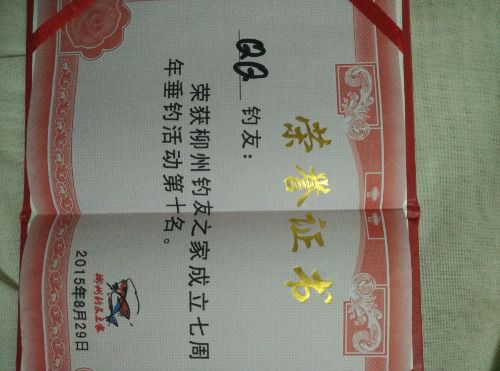 荣誉证书
QQ 钓友：
荣获柳州钓友之家成立七周
年垂钓活动第十名。
柳州钓友之家
2015年8月29日